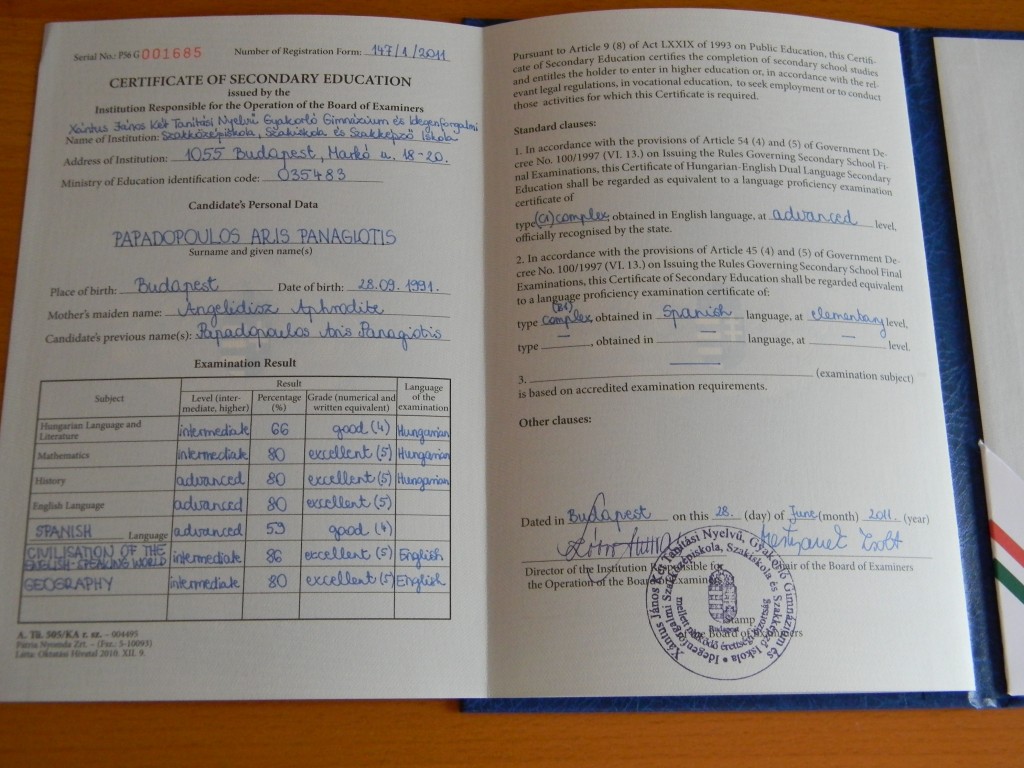 Serial No.: P56 G 001685 Number of Registration Form: 147/1/2011
CERTIFICATE OF SECONDARY EDUCATION
issued by the
Institution Responsible for the Operation of the Board of Examiners
Xántus János Két Tanítási Nyelvű Gyakorló Gimnázium és Idegenforgalmi
Name of Institution: Szakközépiskola, Szakiskola és Szakképző Iskola
Address of Institution: 1055 Budapest, Markó u. 18-20.
Ministry of Education identification code: 035483
Candidate's Personal Data
PAPADOPOULOS ARIS PANAGIOTIS
Surname and given name(s)
Place of birth: Budapest Date of birth: 28.09.1991.
Mother's maiden name: Angelidisz Aphrodite
Candidate's previous name(s): Papadopoulos Aris Panagiotis
Examination Result
Subject Result Language of the examination
Level (intermediate, higher) Percentage (%) Grade (numerical and written equivalent)
Hungarian Language and Literature intermediate 66 good (4) Hungarian
Mathematics intermediate 80 excellent (5) Hungarian
History advanced 80 excellent (5) Hungarian
English Language advanced 80 excellent (5)
SPANISH Language advanced 59 good (4)
CIVILISATION OF THE ENGLISH-SPEAKING WORLD intermediate 86 excellent (5) English
GEOGRAPHY intermediate 80 excellent (5) English
A. Tü. 505/KA r. sz. – 004495
Pátria Nyomda Zrt. – (Fsz.: 5-10093)
Látta: Oktatási Hivatal 2010. XII. 9.
Pursuant to Article 9 (8) of Act LXXIX of 1993 on Public Education, this Certifi-
cate of Secondary Education certifies the completion of secondary school studies
and entitles the holder to enter in higher education or, in accordance with the rel-
evant legal regulations, in vocational education, to seek employment or to conduct
those activities for which this Certificate is required.
Standard clauses:
1. In accordance with the provisions of Article 54 (4) and (5) of Government De-
cree No. 100/1997 (VI. 13.) on Issuing the Rules Governing Secondary School Fi-
nal Examinations, this Certificate of Hungarian-English Dual Language Secondary
Education shall be regarded as equivalent to a language proficiency examination
certificate of
type (C1) complex, obtained in English language, at advanced level,
officially recognised by the state.
2. In accordance with the provisions of Article 45 (4) and (5) of Government De-
cree No. 100/1997 (VI. 13.) on Issuing the Rules Governing Secondary School Final
Examinations, this Certificate of Secondary Education shall be regarded equivalent
to a language proficiency examination certificate of:
(B1)
type complex, obtained in Spanish language, at elementary level,
type —, obtained in — language, at — level.
3. (examination subject)
is based on accredited examination requirements.
Other clauses:
Dated in Budapest on this 28. (day) of June (month) 2011. (year)
Director of the Institution Responsible for Chair of the Board of Examiners
the Operation of the Board of Examiners
Stamp
Board of Examiners
Xántus János Két Tanítási Nyelvű, Gyakorló Gimnázium és
Idegenforgalmi Szakközépiskola, Szakiskola és Szakképző Iskola
mellett működő érettségi bizottság
Budapest